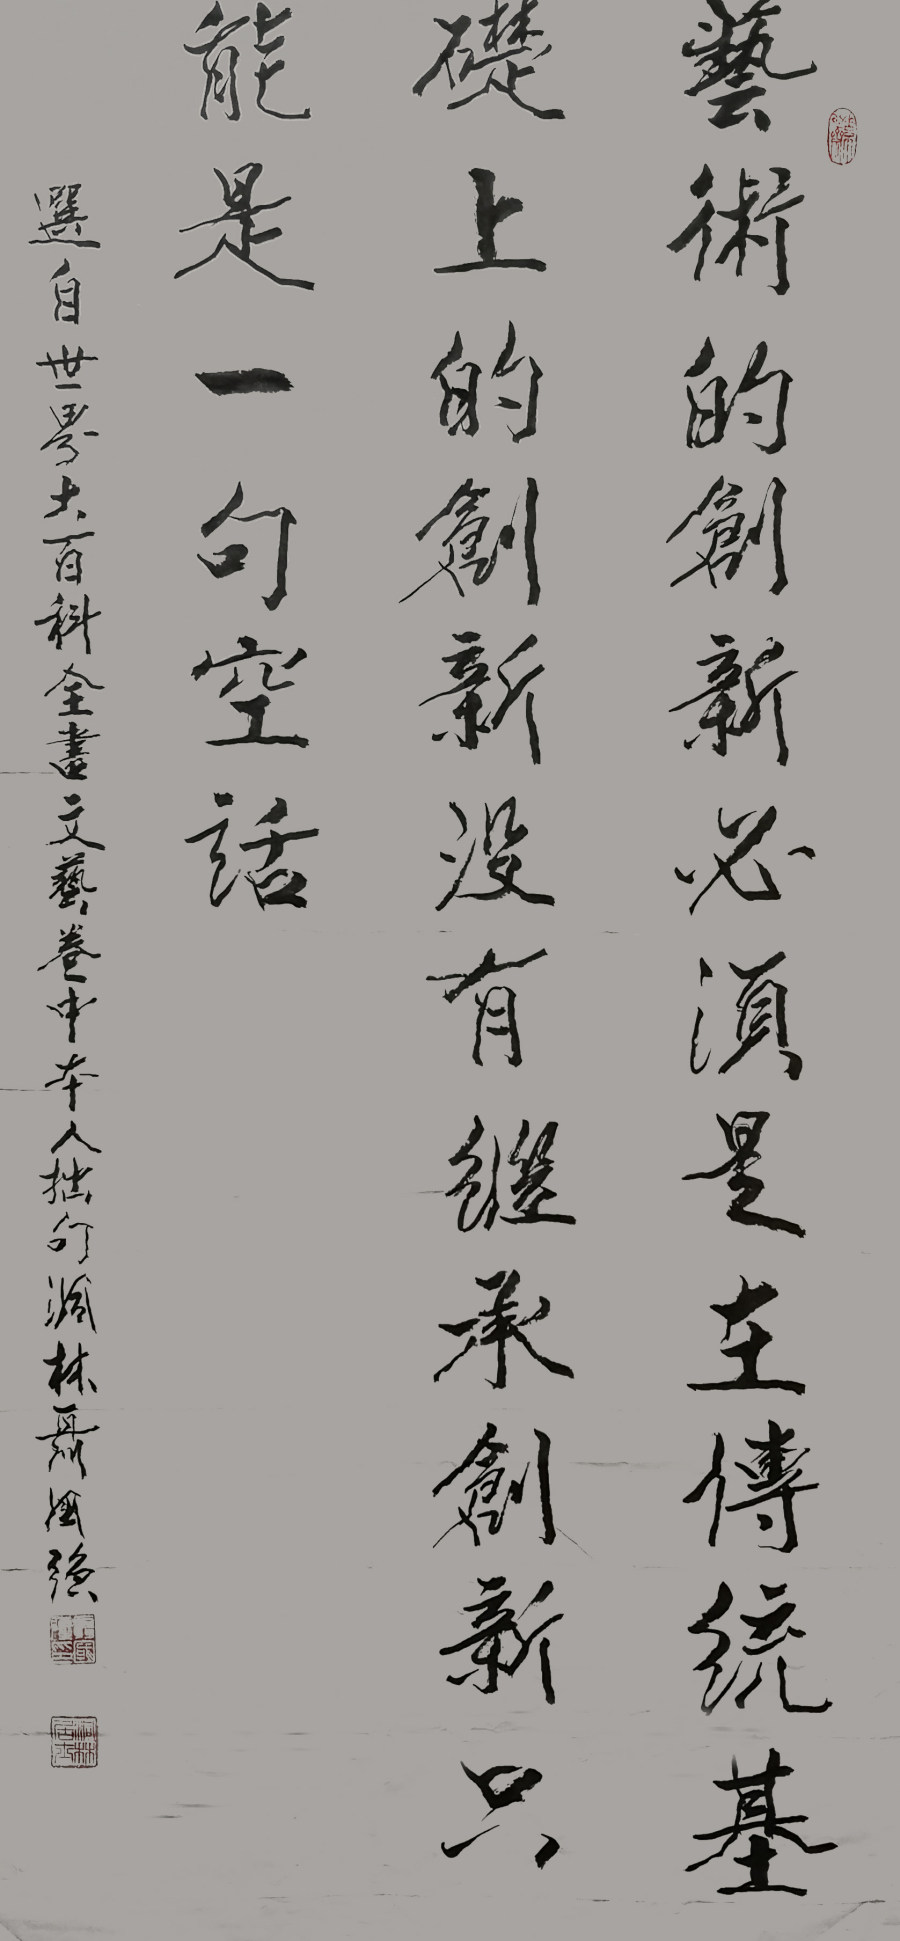 藝術的創新必須是在傳統基
礎上的創新没有繼承創新只
能是一句空話
選自世界大百科全書文藝卷中本人拙句 林聶 强